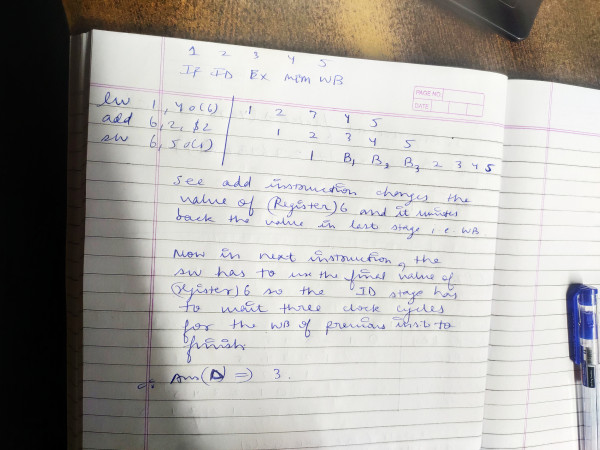 1 2 3 4 5
IF ID EX MEM WB
PAGE NO.
DATE
lw 1, 40(6) 1 2 3 4 5
add 6, 2, $2 1 2 3 4 5
sw 6, 50(1) 1 B1 B2 B3 2 3 4 5
See add instruction changes the
value of (Register) 6 and it writes
back the value in last stage i.e. WB
Now in next instruction, the
sw has to use the final value of
(register) 6 so the ID stage has
to wait three clock cycles
for the WB of previous instr to
finish
Ans(D) => 3.